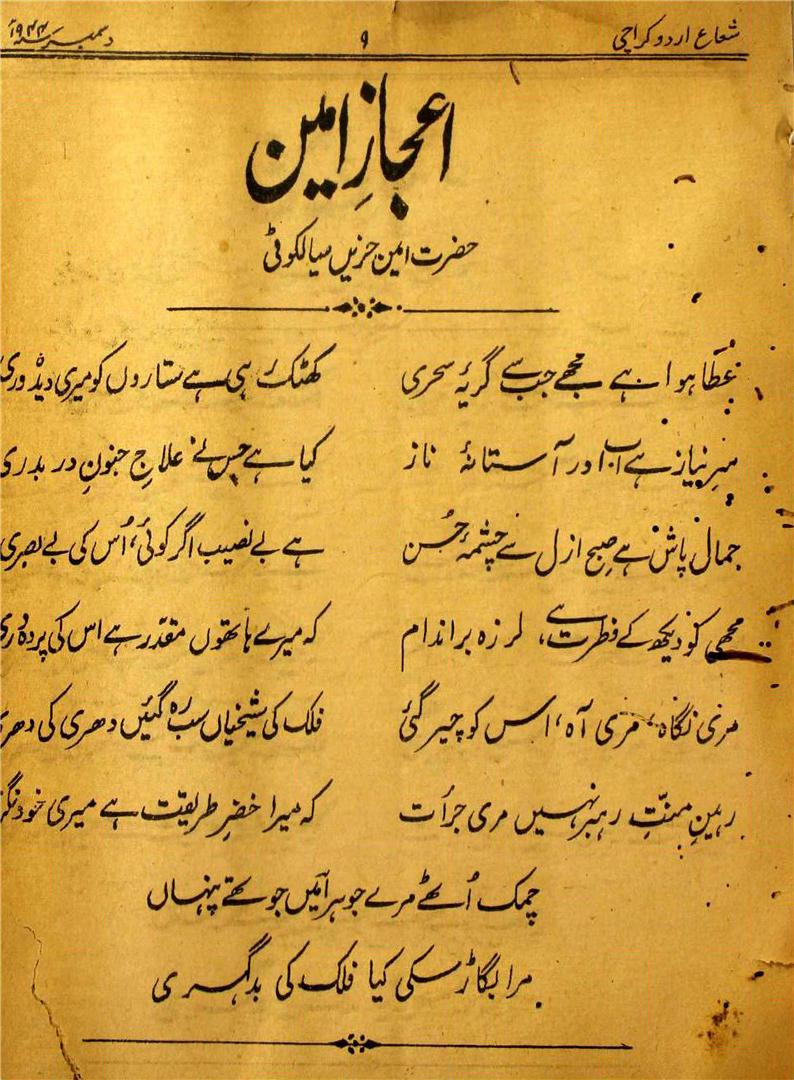 شعاع اردو کراچی ۹ دسمبر سنہ ۱۹۴۴ء
اعجازِ امین
حضرت امین حزیں سیالکوٹی
عطا ہوا ہے مجھے جب سے گریۂ سحری کھٹک رہی ہے ستاروں کو میری دیدہ وری
سرِ نیاز ہے اب اور آستانۂ ناز کیا ہے جس نے علاجِ جنونِ در بدری
جمال پاش ہے صبحِ ازل سے چشمۂ حُسن ہے بے نصیب اگر کوئی، اُس کی بے بصری
مجھی کو دیکھ کے فطرت ہے، لرزہ براندام کہ میرے ہاتھوں مقدّر ہے اس کی پردہ دری
مری نگاہ، مری آہ، اس کو چیر گئی فلک کی شیخیاں سب رہ گئیں دھری کی دھری
رہینِ منّتِ رہبر نہیں مری جرأت کہ میرا خضرِ طریقت ہے میری خود نگر
چمک اُٹھے مرے جوہر امیں جو تھے پنہاں
مرا بگاڑ سکی کیا فلک کی بدگہری